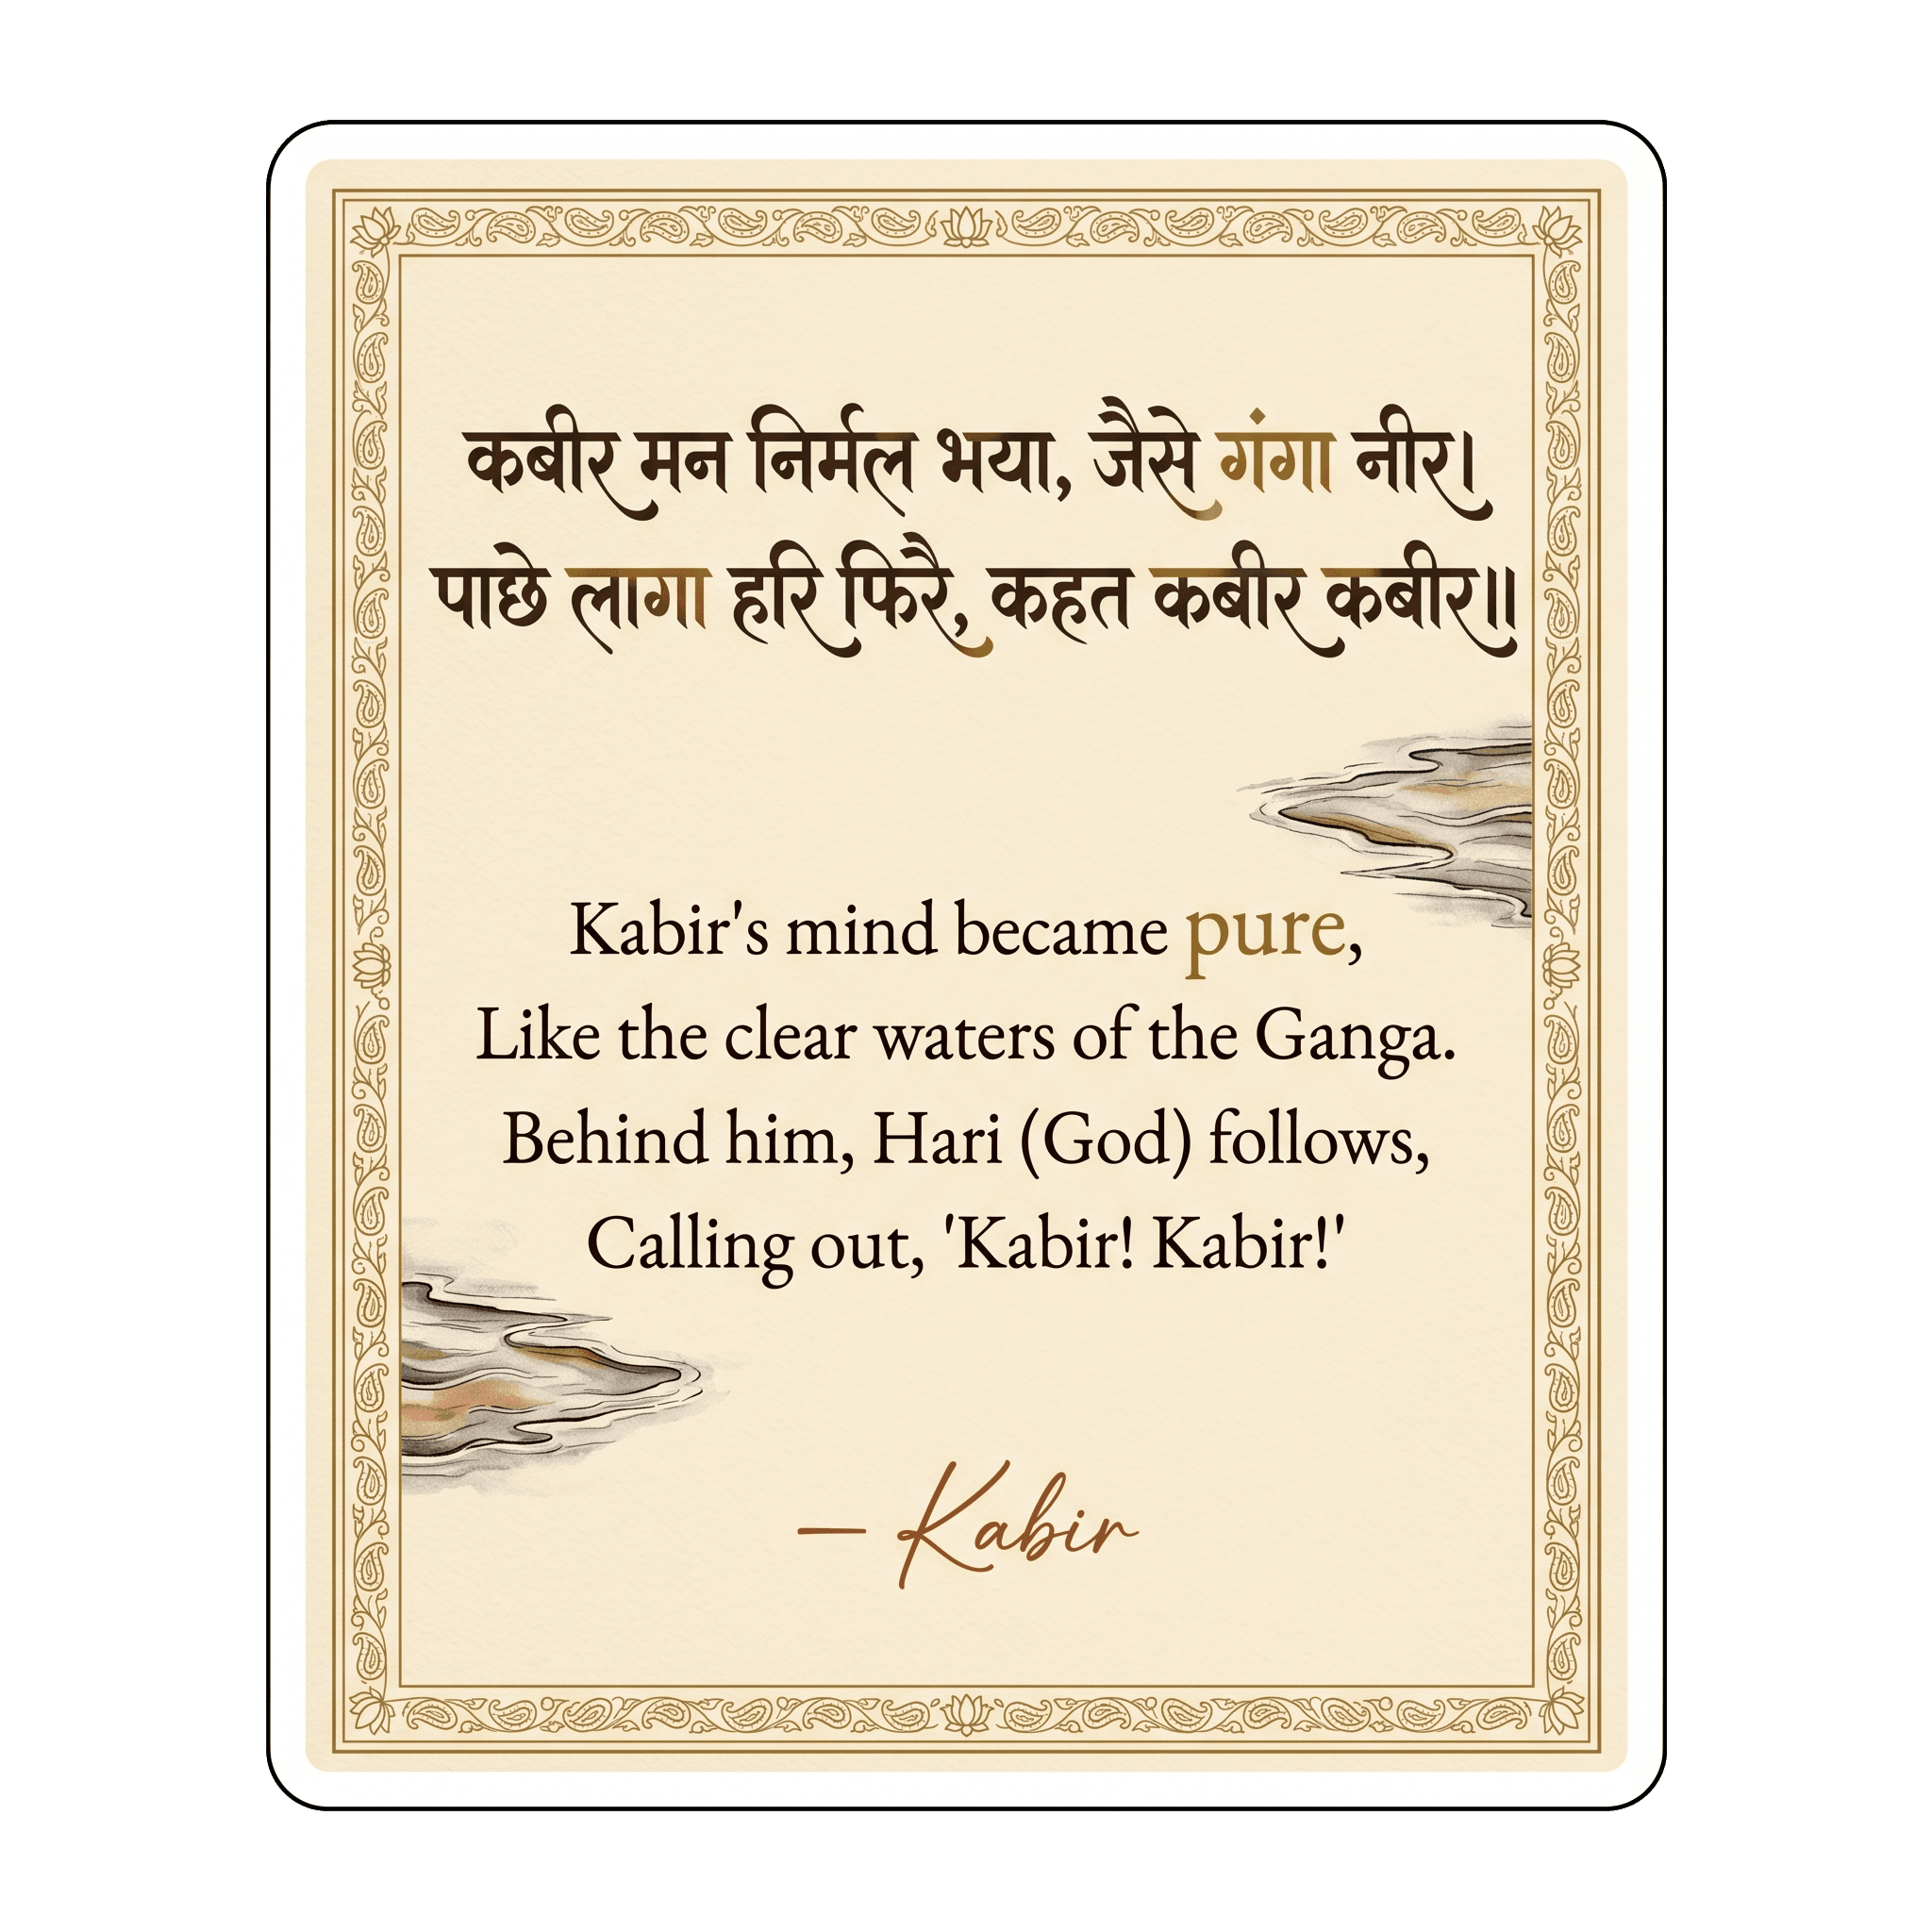 कबीर मन निर्मल भया, जैसे गंगा नीर।
पाछे लागा हरि फिरै, कहत कबीर कबीर॥
Kabir's mind became pure,
Like the clear waters of the Ganga.
Behind him, Hari (God) follows,
Calling out, 'Kabir! Kabir!'
— Kabir